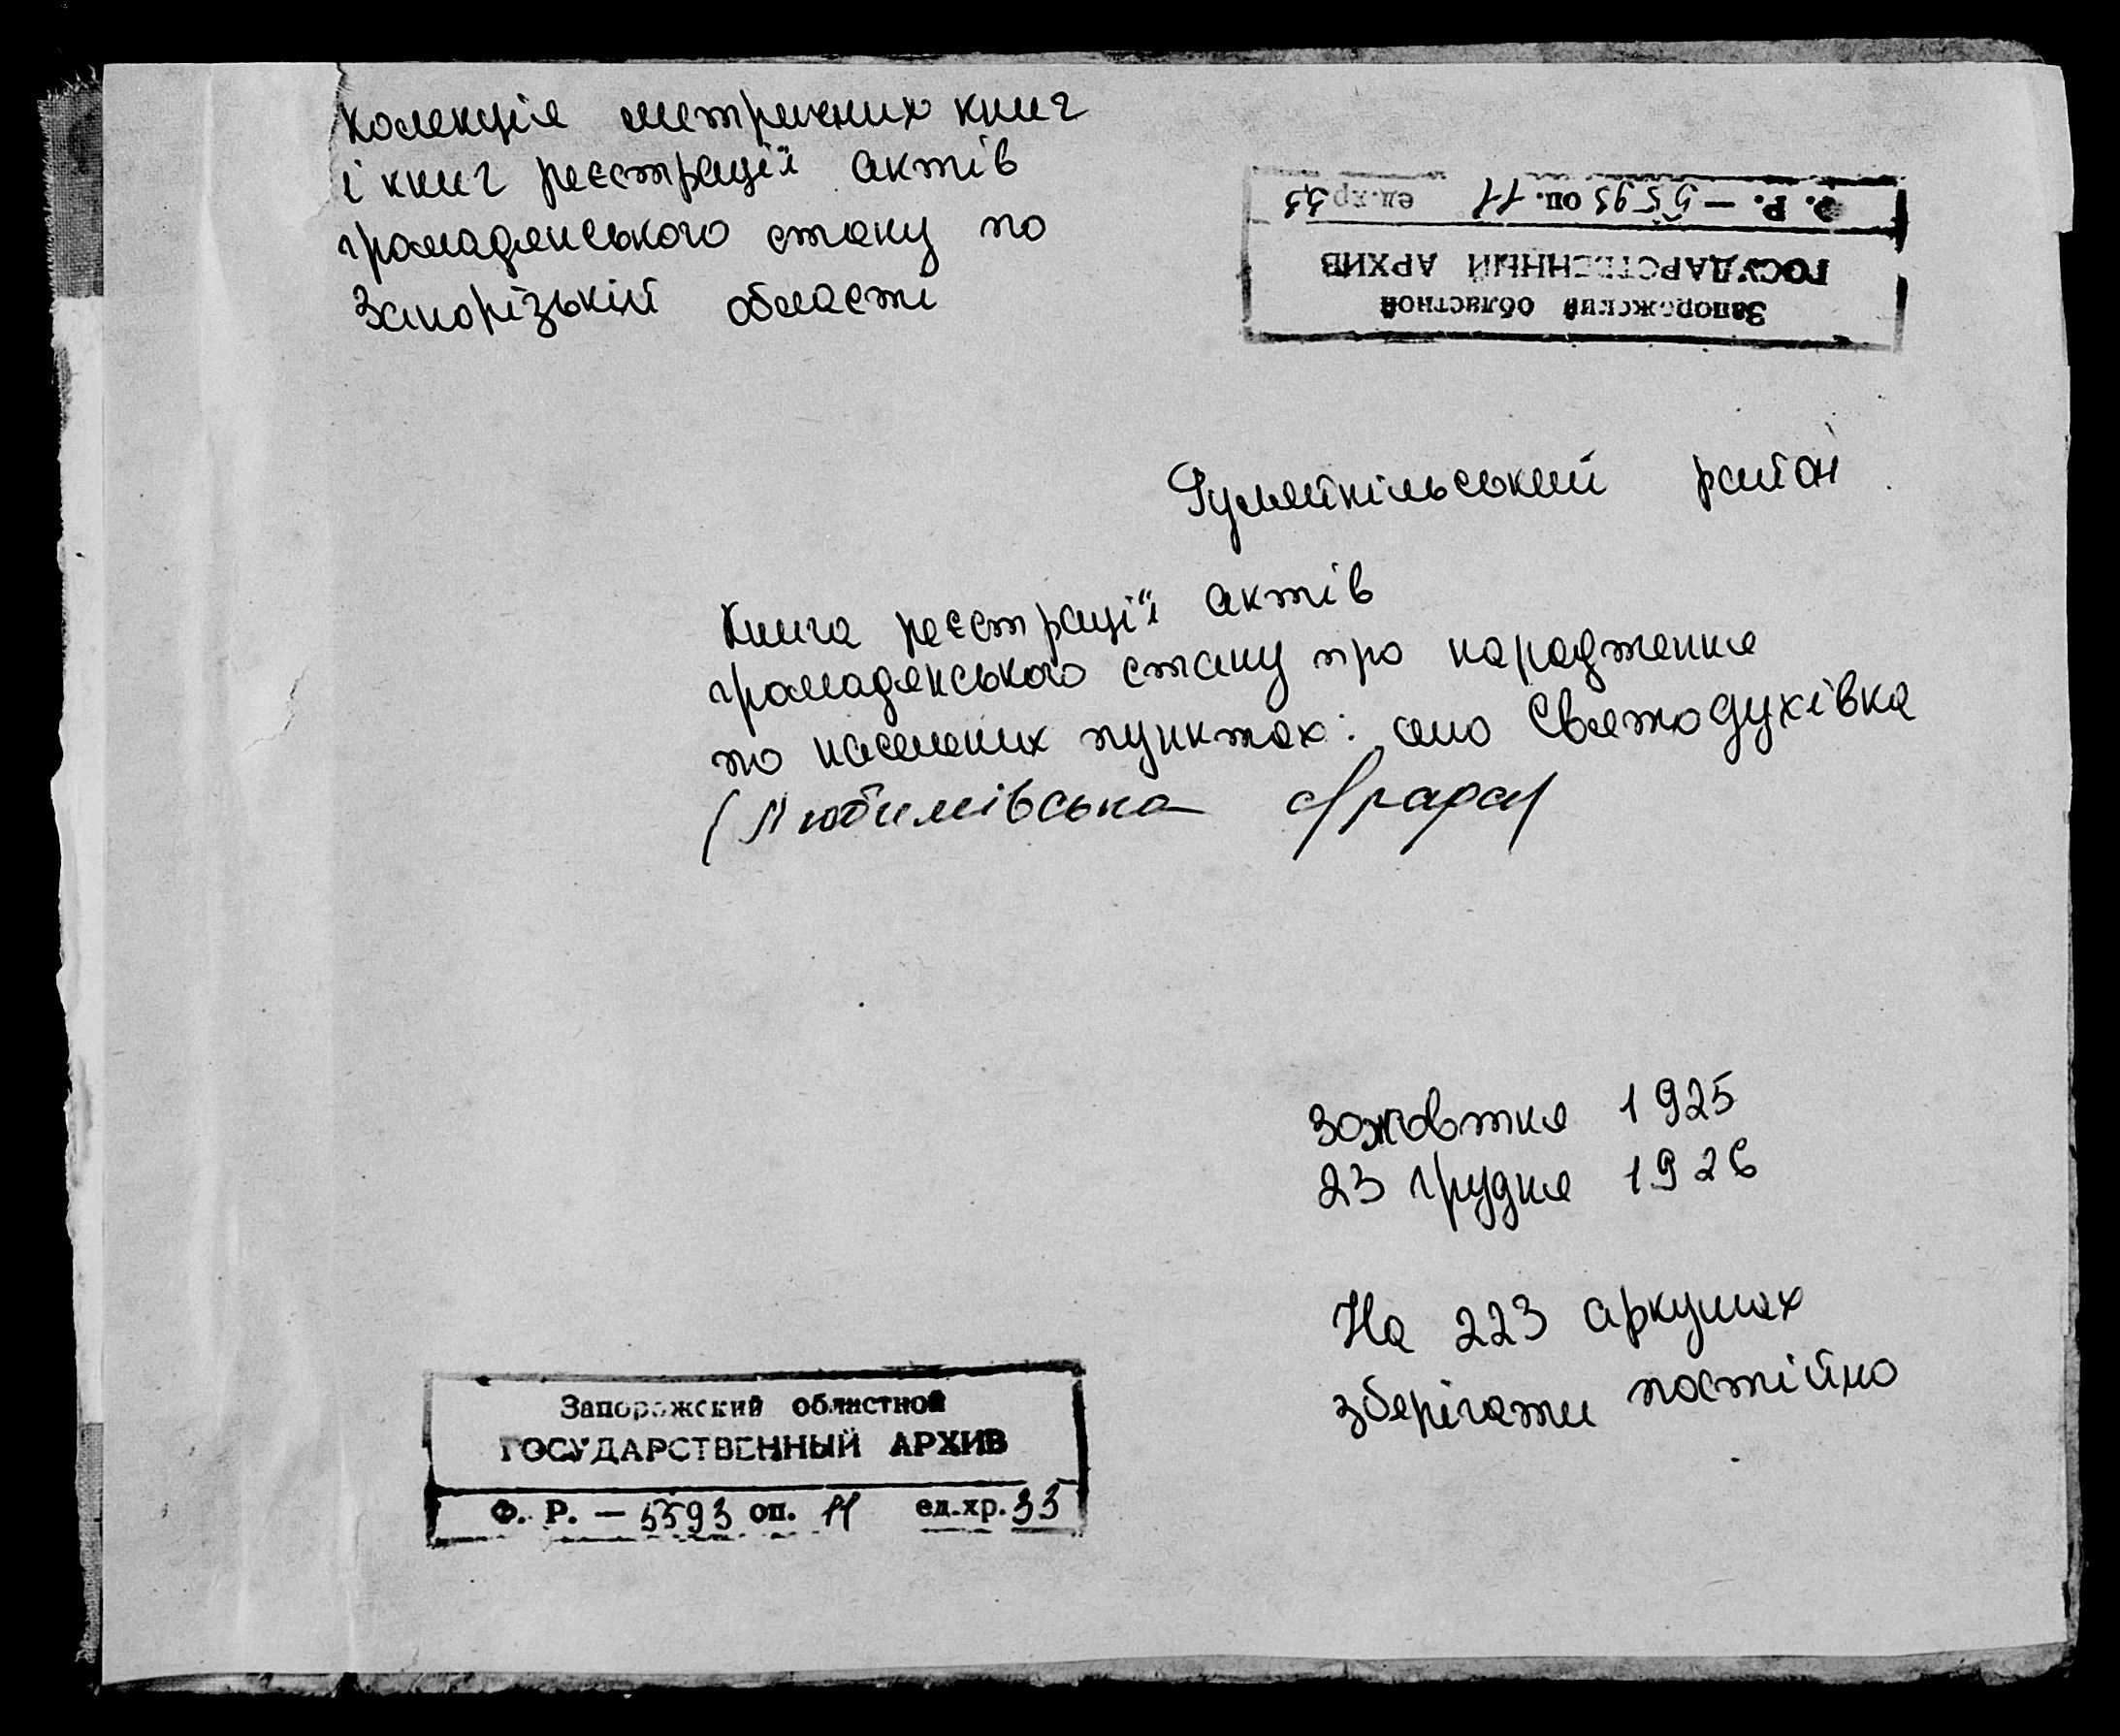 Колекція метричних книг
і книг реєстрації актів
громадянського стану по
Запорізькій області
Ф. Р. — 5593 оп. 11 ед.хр. 33
ГОСУДАРСТВЕННЫЙ АРХИВ
Запорожский областной
Гуляйпільський район
Книга реєстрації актів
громадянського стану про народження
по населених пунктах: село Святодухівка
(Любимівська с/рада)
30 жовтня 1925
23 грудня 1926
На 223 аркушах
зберігати постійно
Запорожский областной
ГОСУДАРСТВЕННЫЙ АРХИВ
Ф. Р. — 5593 оп. 11 ед.хр. 33